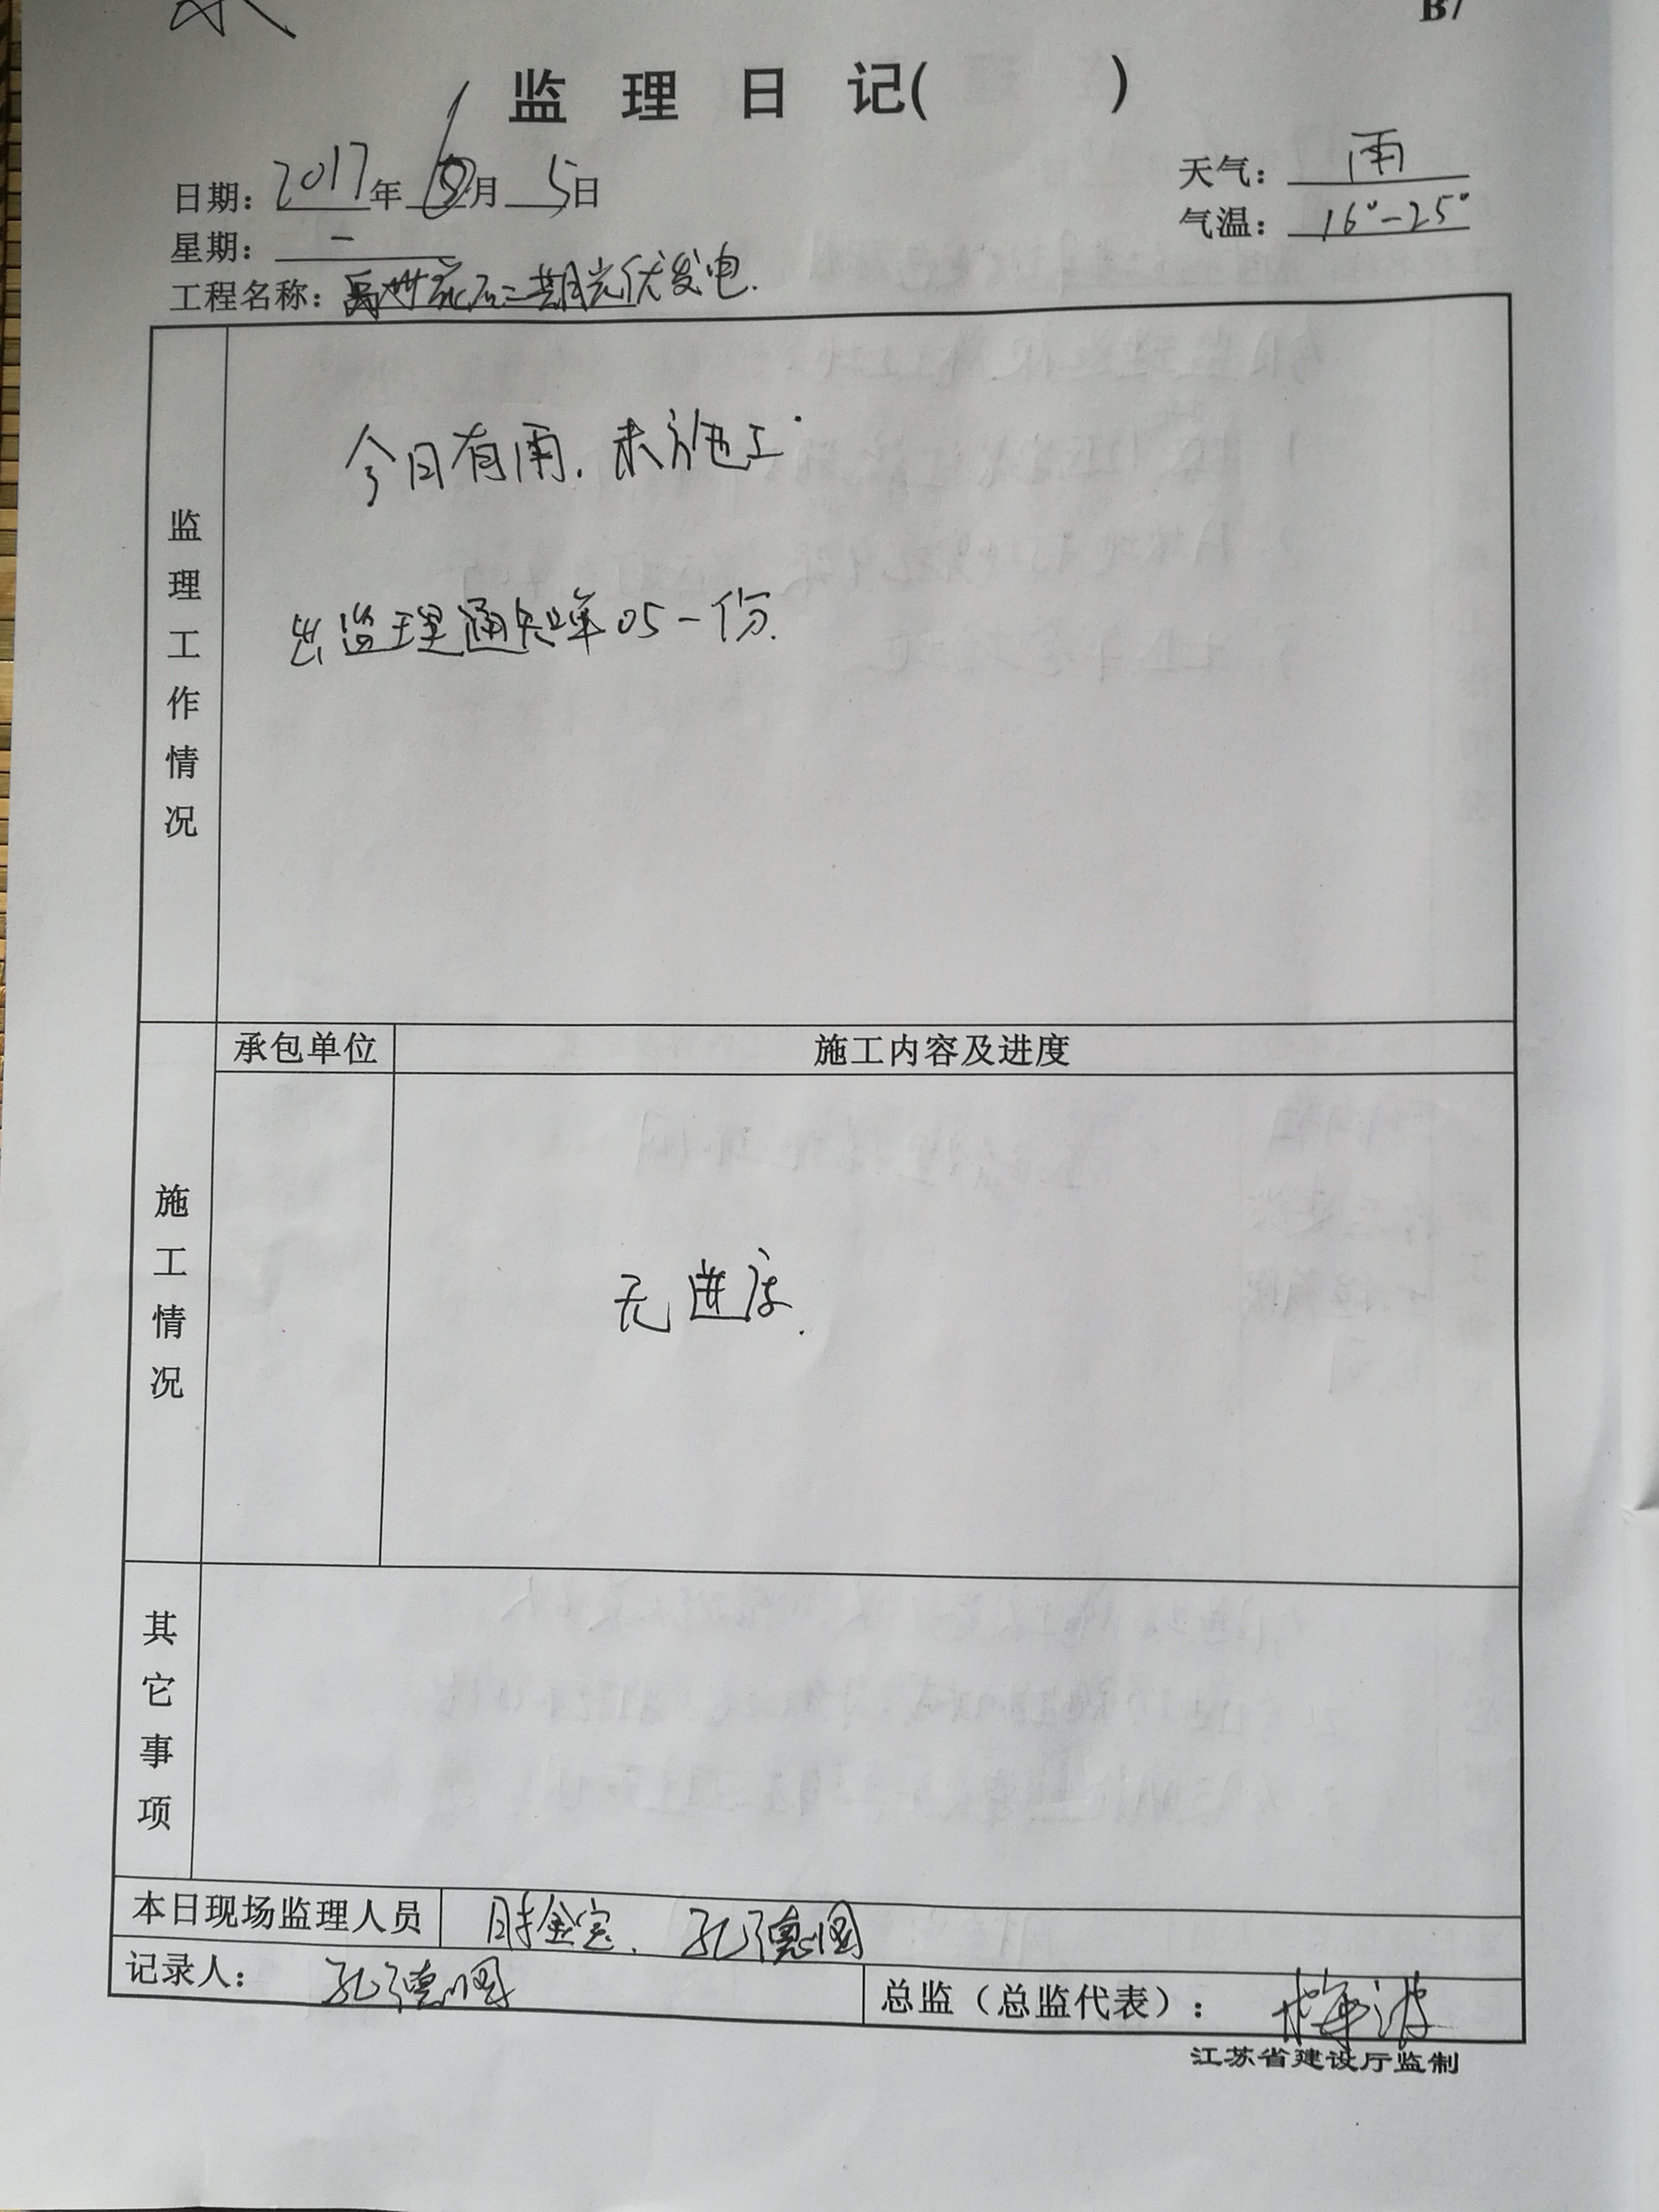 B7
监理日记( )
日期：2017年6月5日
天气：雨
星期：一
气温：16°-25°
工程名称：二期光伏发电.
监理工作情况
今日有雨，未施工.
出监理通知单05一份.
施工情况
承包单位
施工内容及进度
无进度.
其它事项
本日现场监理人员
时金宝、孔德国
记录人：孔德国
总监（总监代表）：梅波
江苏省建设厅监制